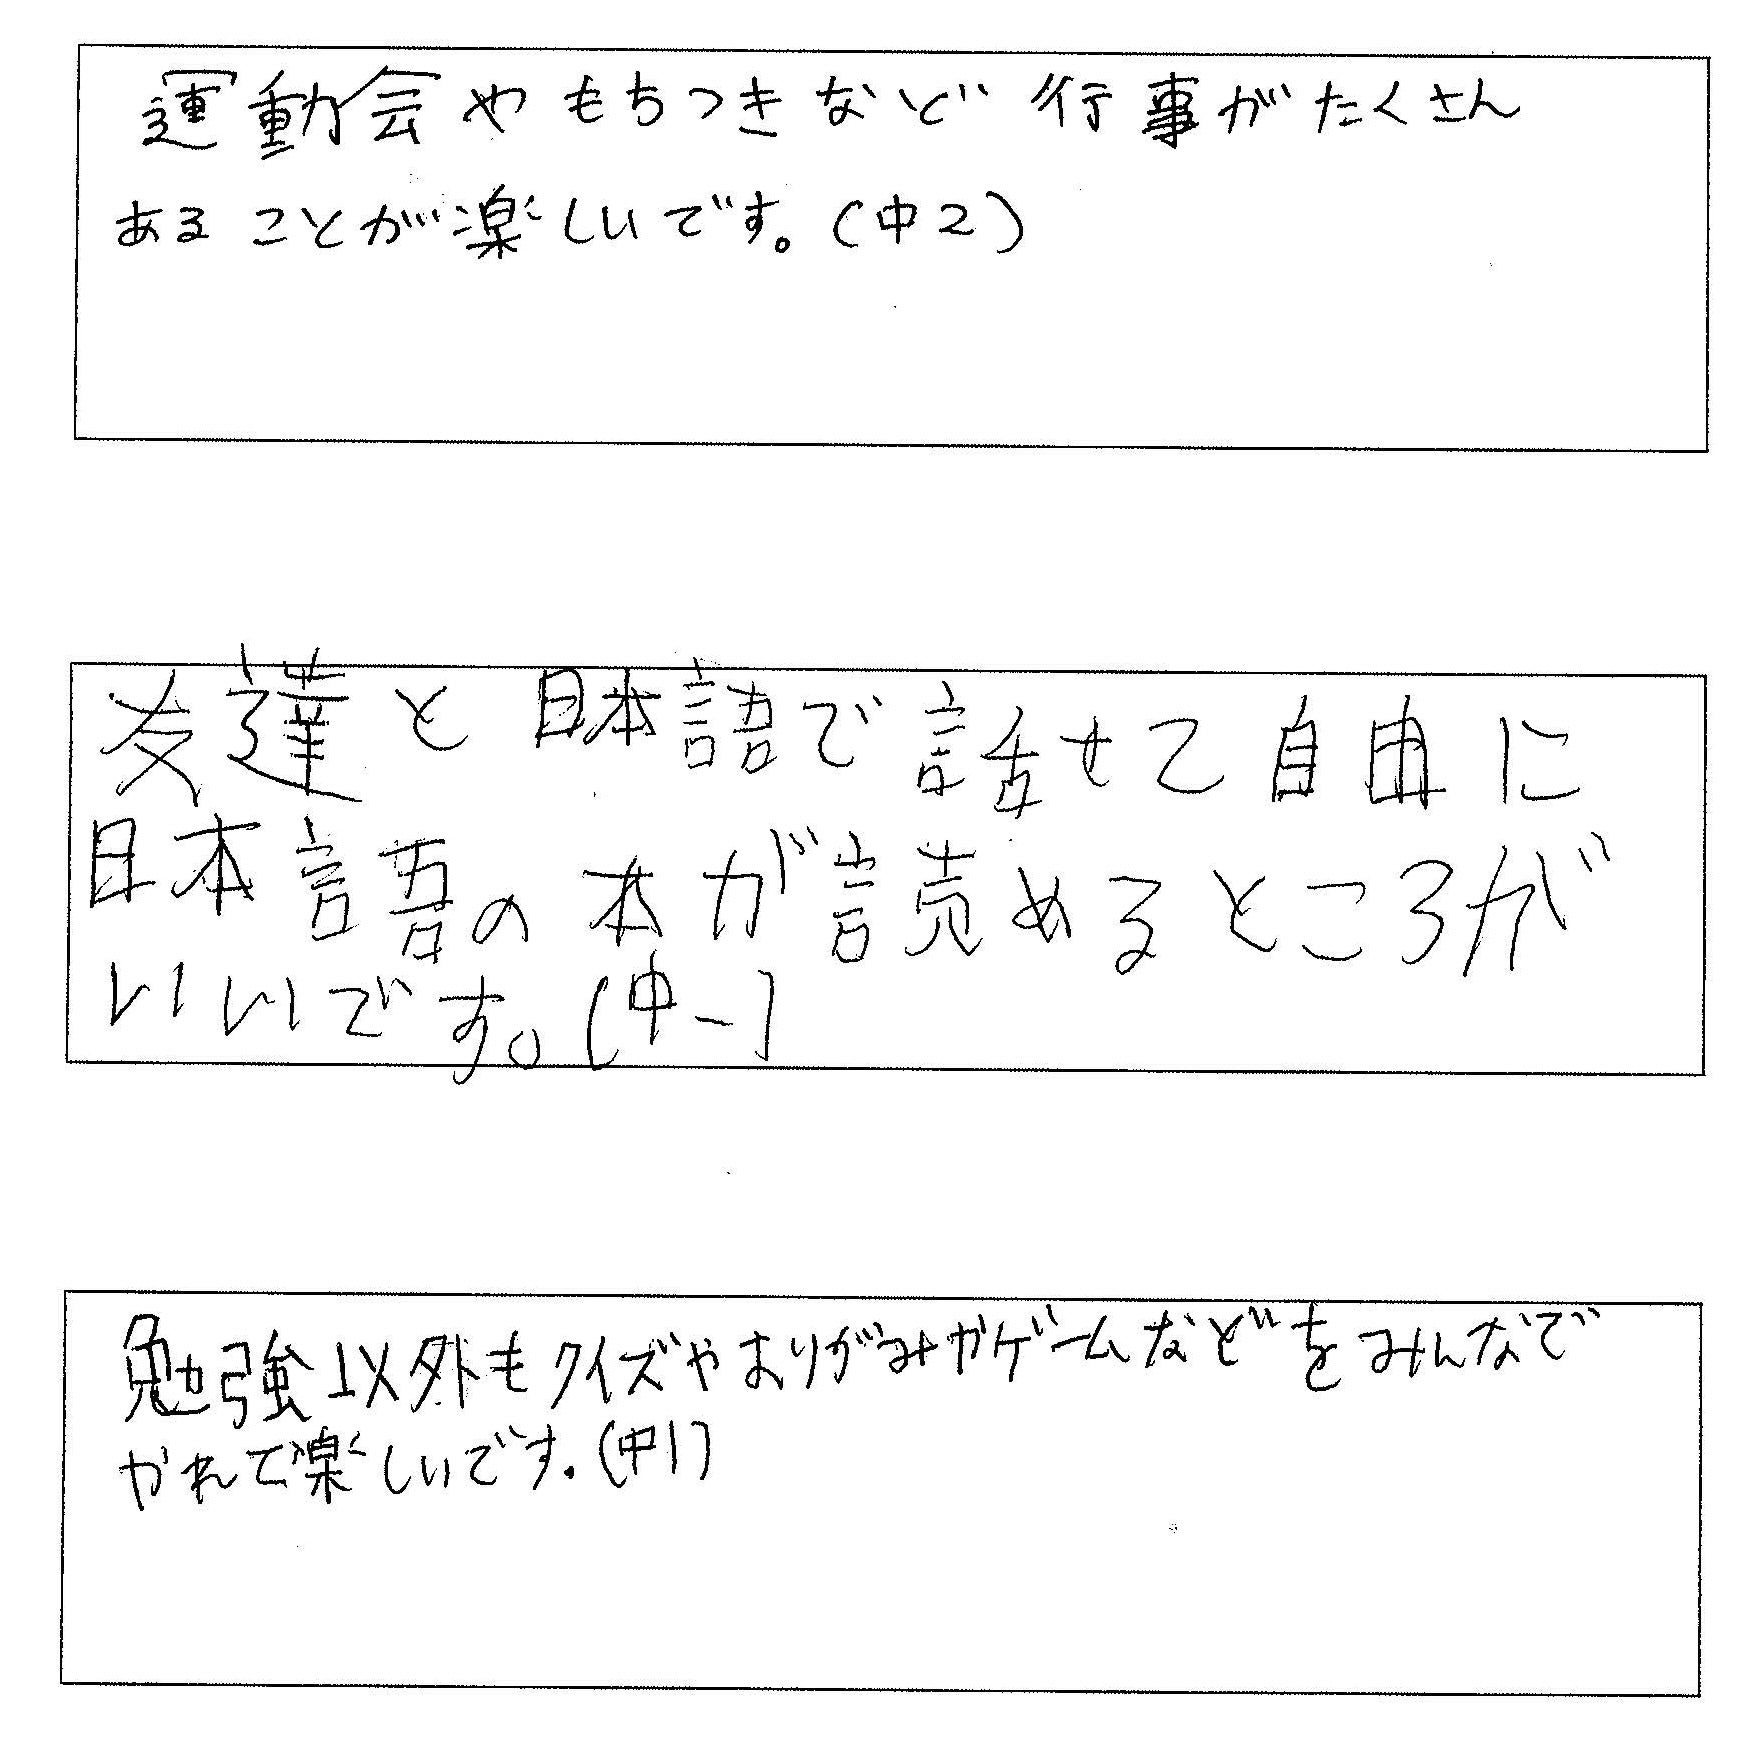 運動会やもちつきなど行事がたくさん
あることが楽しいです。(中2)
友達と日本語で話せて自由に
日本語の本が読めるところが
いいです。(中一)
勉強以外もクイズやおりがみやゲームなどをみんなで
かれて楽しいです。(中1)